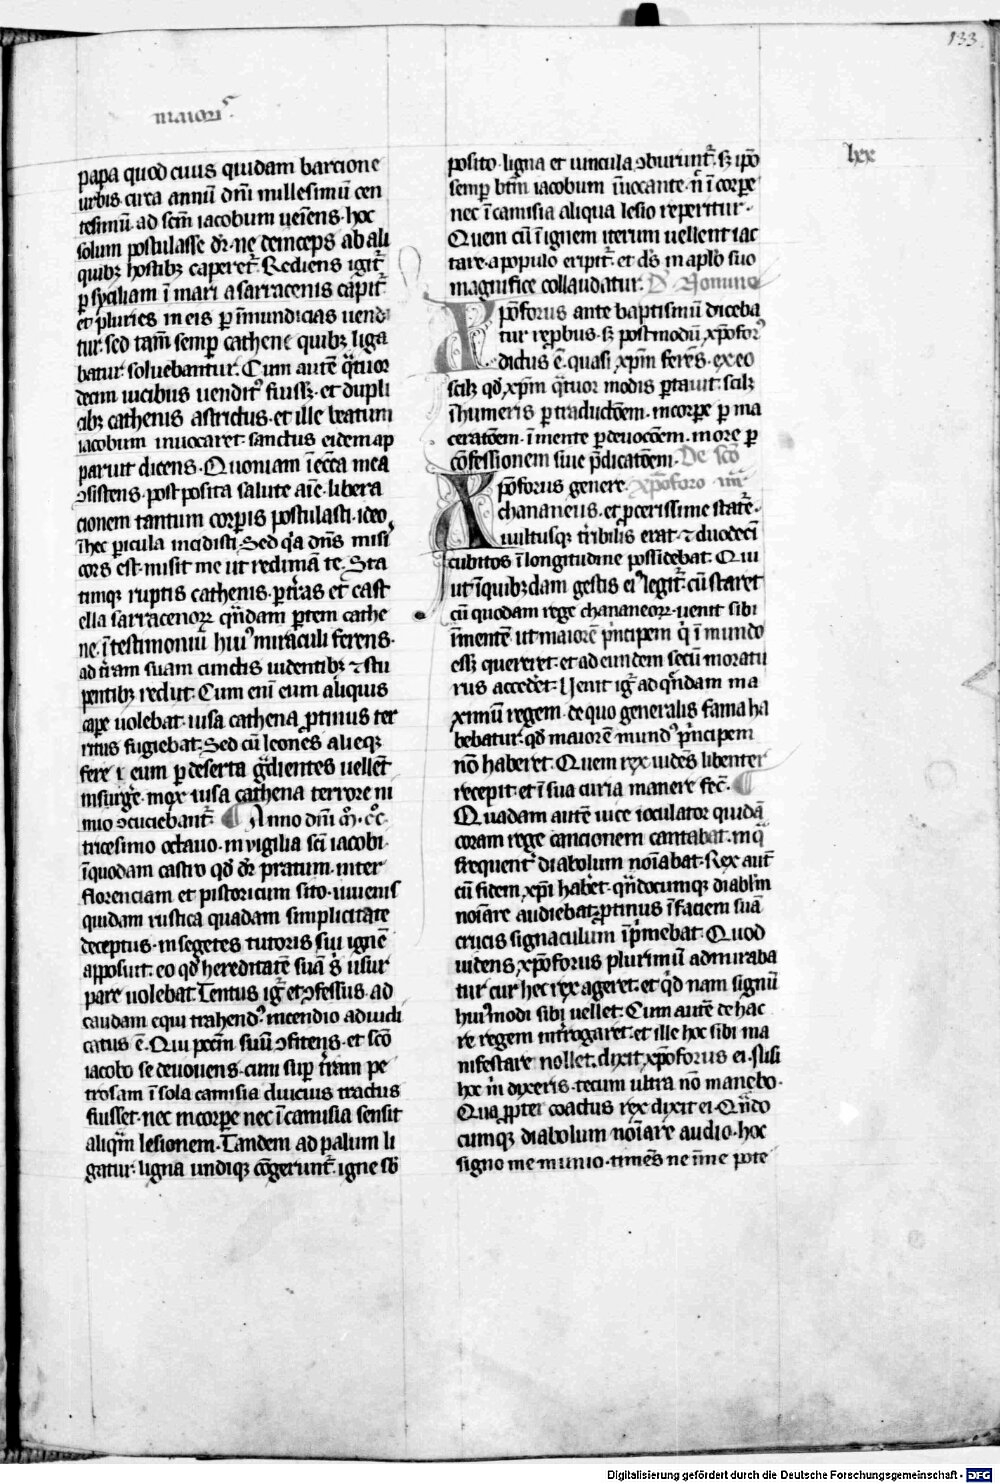 133
maioris
lxx
papa quod ciuis quidam barcione
urbis circa annū dn̄i millesimū cen
tesimū ad scm̄ iacobum ueīens · hoc
solum postulasse dr̄ · ne deinceps ab ali
quibꝫ hostibꝫ caperet᷑. Rediens igit᷑
ꝑ syciliam ī mari a sarracenis capit᷑
et pluries in eis ꝑ īmundicias uendi
tur. sed tam̄ semꝑ cathene quibꝫ liga
batur soluebantur. Cum autē qͣtuor
decim uicibus uenditꝰ fuissꝫ · et dupli
cibꝫ cathenis astrictus · et ille beatum
iacobum inuocaret sanctus eidem ap
paruit dicens. Quoniam ī ecc̄a mea
ↄsistens · post posita salute aīe · libera
cionem tantum corꝑis postulasti · ideo
ī hec ꝑicula incidisti. Sed qͥa dn̄s misi
cors est · misit me ut redimā te. Sta
timqꝫ ruptis cathenis · ꝑ tr̄as et cast
ella sarracenorꝝ quādam ꝑtem cathe
ne · ī testimoniū huiꝰ miraculi ferens ·
ad tr̄am suam cunctis uidentibꝫ ⁊ stu
pentibꝫ rediit. Cum enī eum aliquis
caꝑe uolebat · uisa cathena ꝓtinus ter
ritus fugiebat. Sed cū leones alieqꝫ
fere ī eum ꝑ deserta gͣdientes uellēt
insurgē · mox uisa cathena terrore ni
mio ↄcuciebant᷑. ¶ Anno dn̄i mͦ · ccͦ ·
tricesimo octauo · in vigilia sc̄i iacobi ·
ī quodam castro qd̓ dr̄ pratum · inter
florenciam et pistoricum sito · iuuenis
quidam rustica quadam simplicitate
deceptus · in segetes tutoris sui ignē
apposuit · eo qd̓ hereditatē suā s̓ usur
pare uolebat. Tentus igͬ et ↄfessus · ad
caudam equi trahendꝰ incendio adiudi
catus ē. Qui pcc̄m suū ↄfitens · et sc̄o
iacobo se deuouens · cum suꝑ tr̄am pe
trosam ī sola camisia diucius tractus
fuisset · nec in corꝑe nec ī camisia sensit
aliquā lesionem. Tandem ad palum li
gatur · ligna undiqꝫ cōgerunt᷑ · igne sb̓
posito · ligna et uincula ↄburunt᷑ · sꝫ ip̄o
semꝑ btm̄ iacobum īuocante · n̄ ī corꝑe
nec ī camisia aliqua lesio reperitur ·
Quem cū ī ignem iterum uellent iac
tare · a populo eripit᷑ · et ds̄ in aplo̓ suo
magnifice collaudatur. De Nomine
Xpōforus ante baptismū diceba
tur reꝓbus · sꝫ postmodū xpōforꝰ
dictus ē · quasi xpm̄ ferēs · ex eo
scilꝫ qd̓ xpm̄ qͣtuor modis portauit · scilꝫ
ī humeris ꝑ traductōem · in corꝑe ꝑ ma
ceratōem · ī mente ꝑ deuocōem · in ore ꝑ
cōfessionem siue p̄dicatōem. De sc̄o
Xpōforus genere · xpōforo
chananeus · et ꝓcerissime statͬe ·
uultusqꝫ tr̄ibilis erat · ⁊ duodecī
cubitos ī longitudine possidebat. Qui
ut ī quibꝫdam gestis eiꝰ legit᷑ · cū staret
cū quodam rege chananeorꝝ · uenit sibi
ī mentē ut maiorē pͥncipem qͥ ī mundo
essꝫ quereret · et ad eundem secū moratu
rus accederet. Uenit igͬ ad quēdam ma
ximū regem · de quo generalis fama ha
bebatur · qd̓ maiorē mundꝰ pͥncipem
nō haberet. Quem rex uidēs libenter
recepit · et ī sua curia manere fec̄. ¶
Quadam autē uice ioculator quidā
coram rege cancionem cantabat · in qͣ
frequenter diabolum noīabat. Rex aut̄
cū fidem xp̄i haberet · qn̄documqꝫ diabl̓m
noīare audiebat · ꝓtinus ī faciem suā
crucis signaculum īpͥmebat. Quod
uidens xpōforus plurimū admiraba
tur cur hec rex ageret · et qͥd nam signū
huiꝰmodi sibi uellet. Cum autē de hac
re regem int̓rogaret · et ille hoc sibi ma
nifestare nollet. dixit xpōforus ei · si m̓
hoc n̄ dixeris · tecum ultra nō manebo.
Quaꝓpter coactus rex dixit ei. Qn̄do
cumqꝫ diabolum noīare audio · hoc
signo me munio · timēs ne ī me pote
Digitalisierung gefördert durch die Deutsche Forschungsgemeinschaft - DFG